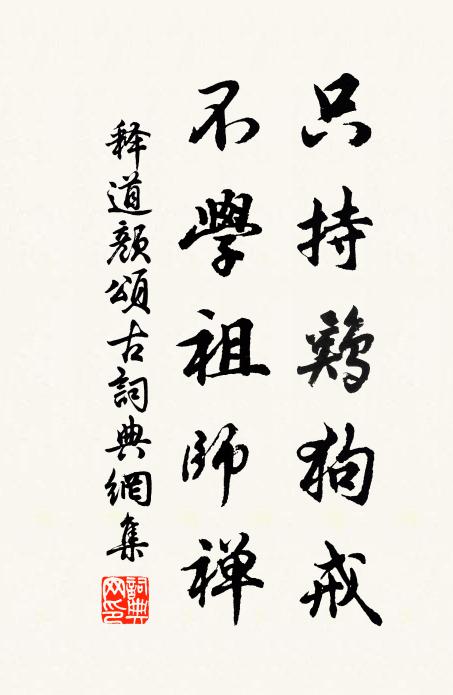 只持鷄狗戒
不學祖師禅
释道颜頌古詞典網集
詞典网印